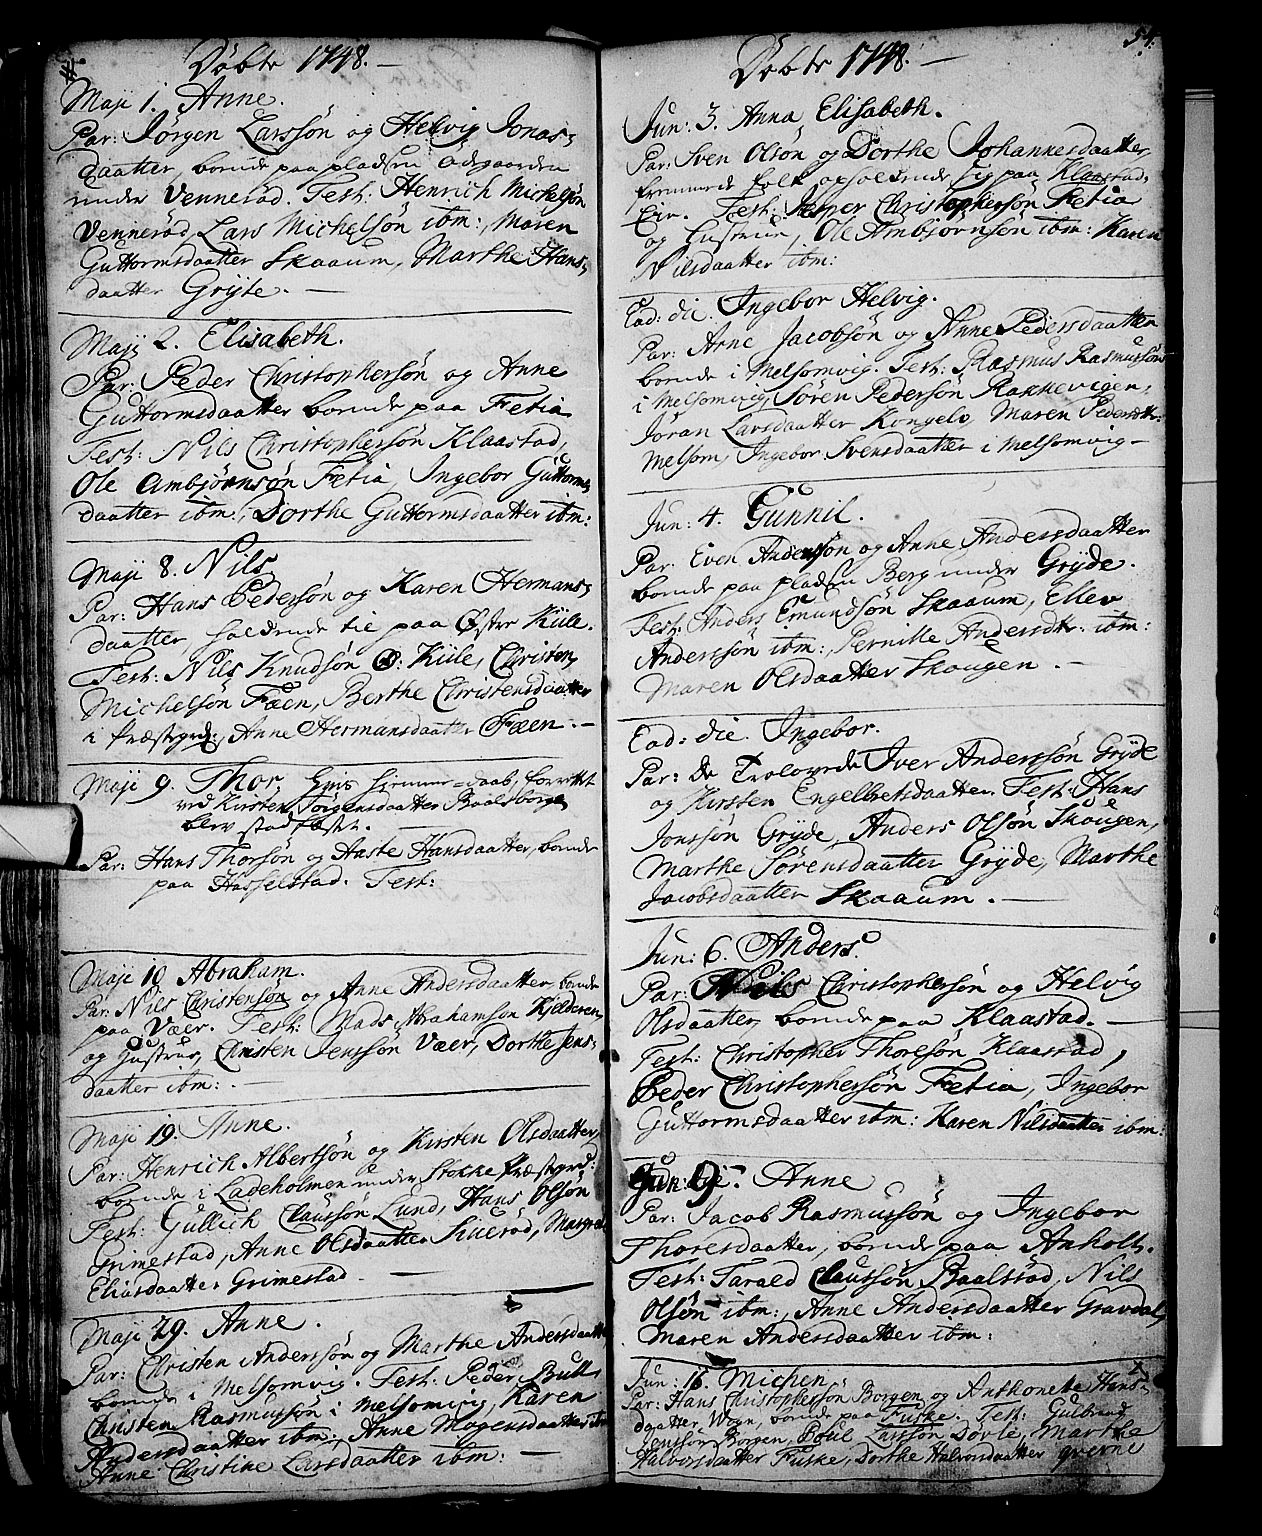 Döbte 1748. —
Maji 1. Anne.
Par: Jörgen Larssön og Helvig Jonas-
daatter, boende paa pladsen Ødegaarden
under Vennerød. Test: Henrich Michelsön
Vennerød, Lars Michelsön ibm:, Maren
Guttormsdaatter Skaaum, Marthe Hans-
daatter Gryte. —
Maji 2. Elisabeth.
Par: Peder Christophersön og Anne
Guttormsdaatter boende paa Fetia
Test: Nils Christophersön Klaastad,
Ole Ambjörnsön Fetia, Ingebor Guttorms-
daatter ibm:, Dorthe Guttormsdaatter ibm:
Maji 8. Nils
Par: Hans Pedersön og Karen Hermans-
daatter, holdende til paa Østre Kiile.
Test: Nils Knudsön Ø: Kiile, Christen
Michelsön Fäen, Berthe Christensdaatter
i Præstgrd:, Anne Hermansdaatter Fäen. —
Maji 9. Thor, hvis hiemme-daab, forrettet
ved Kirsten Jörgensdaatter Baalsborge,
blev stadfæstet.
Par: Hans Thorsön og Aaste Hansdaatter, boende
paa Hasselstad. Test:
Maji 10 Abraham.
Par: Nils Christensön og Anne Andersdaatter, boende
paa Væer. Test: Mads Abrahamsön Kjelderen
og Hustrue, Christen Jenssön Væer, Dorthe Jens-
daatter ibm: —
Maji 19. Anne.
Par: Henrich Albertsön og Kirsten Olsdaatter,
boende i Ladeholmen under Stokke Præstgrd:
Test: Gullich Claussön Lund, Hans Olsön
Grimestad, Anne Olsdaatter, Margrete
Eliasdaatter Grimestad. —
Maji 29. Anne.
Par: Christen Anderssön og Marthe Andersdaatter
boende i Melsomvig. Test: Peder Bull,
Christen Rasmussön i Melsomvig, Karen
Andersdaatter ibm:, Anne Mogensdaatter
Anne Christine Larsdaatter ibm: —
54.
Döbte 1748. —
Jun: 3. Anna Elisabeth.
Par: Sven Olsön og Dorthe Johannesdaatter,
fremmede folk opholdende sig paa Klaastad-
Eie. Test: Jesper Christophersön Fetia
og Hustrue, Ole Ambjörnsön ibm: Karen
Nilsdaatter ibm:
Ead: die. Ingebor Helvig.
Par: Arne Jacobsön og Anne Pedersdaatter
boende i Melsomvig. Test: Rasmus Rasmussön
i Melsomvig, Sören Pedersön Rakkevigen,
Jöran Larsdaatter Kongels, Maren Pedersdtr:
Melsom, Ingebor Svensdaatter i Melsomvig —
Jun: 4. Gunnil.
Par: Even Andersön og Anne Andersdaatter
boende paa pladsen Berg under Gryde.
Test: Anders Emundsön Skaaum, Ellev
Anderssön ibm:, Pernille Andersdtr: ibm:
Maren Olsdaatter Skougen. —
Ead: die. Ingebor.
Par: De Trolovede Iver Anderssön Gryde
og Kirsten Engelbretsdaatter. Test: Hans
Jonssön Gryde, Anders Olsön Skougen,
Marthe Sörensdaatter Gryde, Marthe
Jacobsdaatter Skaaum. —
Jun: 6. Anders
Par: Nils Christophersön og Helvig
Olsdaatter, boende paa Klaastad. —
Test: Christopher Thorlsön Klaastad,
Peder Christophersön Fetia, Ingebor
Guttormsdaatter ibm: Karen Nilsdaatter ibm:
Jun: 9. Anne
Par: Jacob Rasmussön og Ingebor
Thoresdaatter, boende paa Anholt.
Test: Tarald Claussön Baalstad, Nils
Olsön ibm:, Anne Andersdaatter Gravdal,
Maren Andersdaatter ibm:
Jun: 16. Michen
Par: Hans Christophersön Borgen og Anthonette Hans-
daatter Wogn, boende paa Fuske. Test: Gulbrand
Jenssön Borgen, Poul Larssön Dövle, Marthe
Halvorsdaatter Fuske, Dorthe Halvorsdaatter qverne